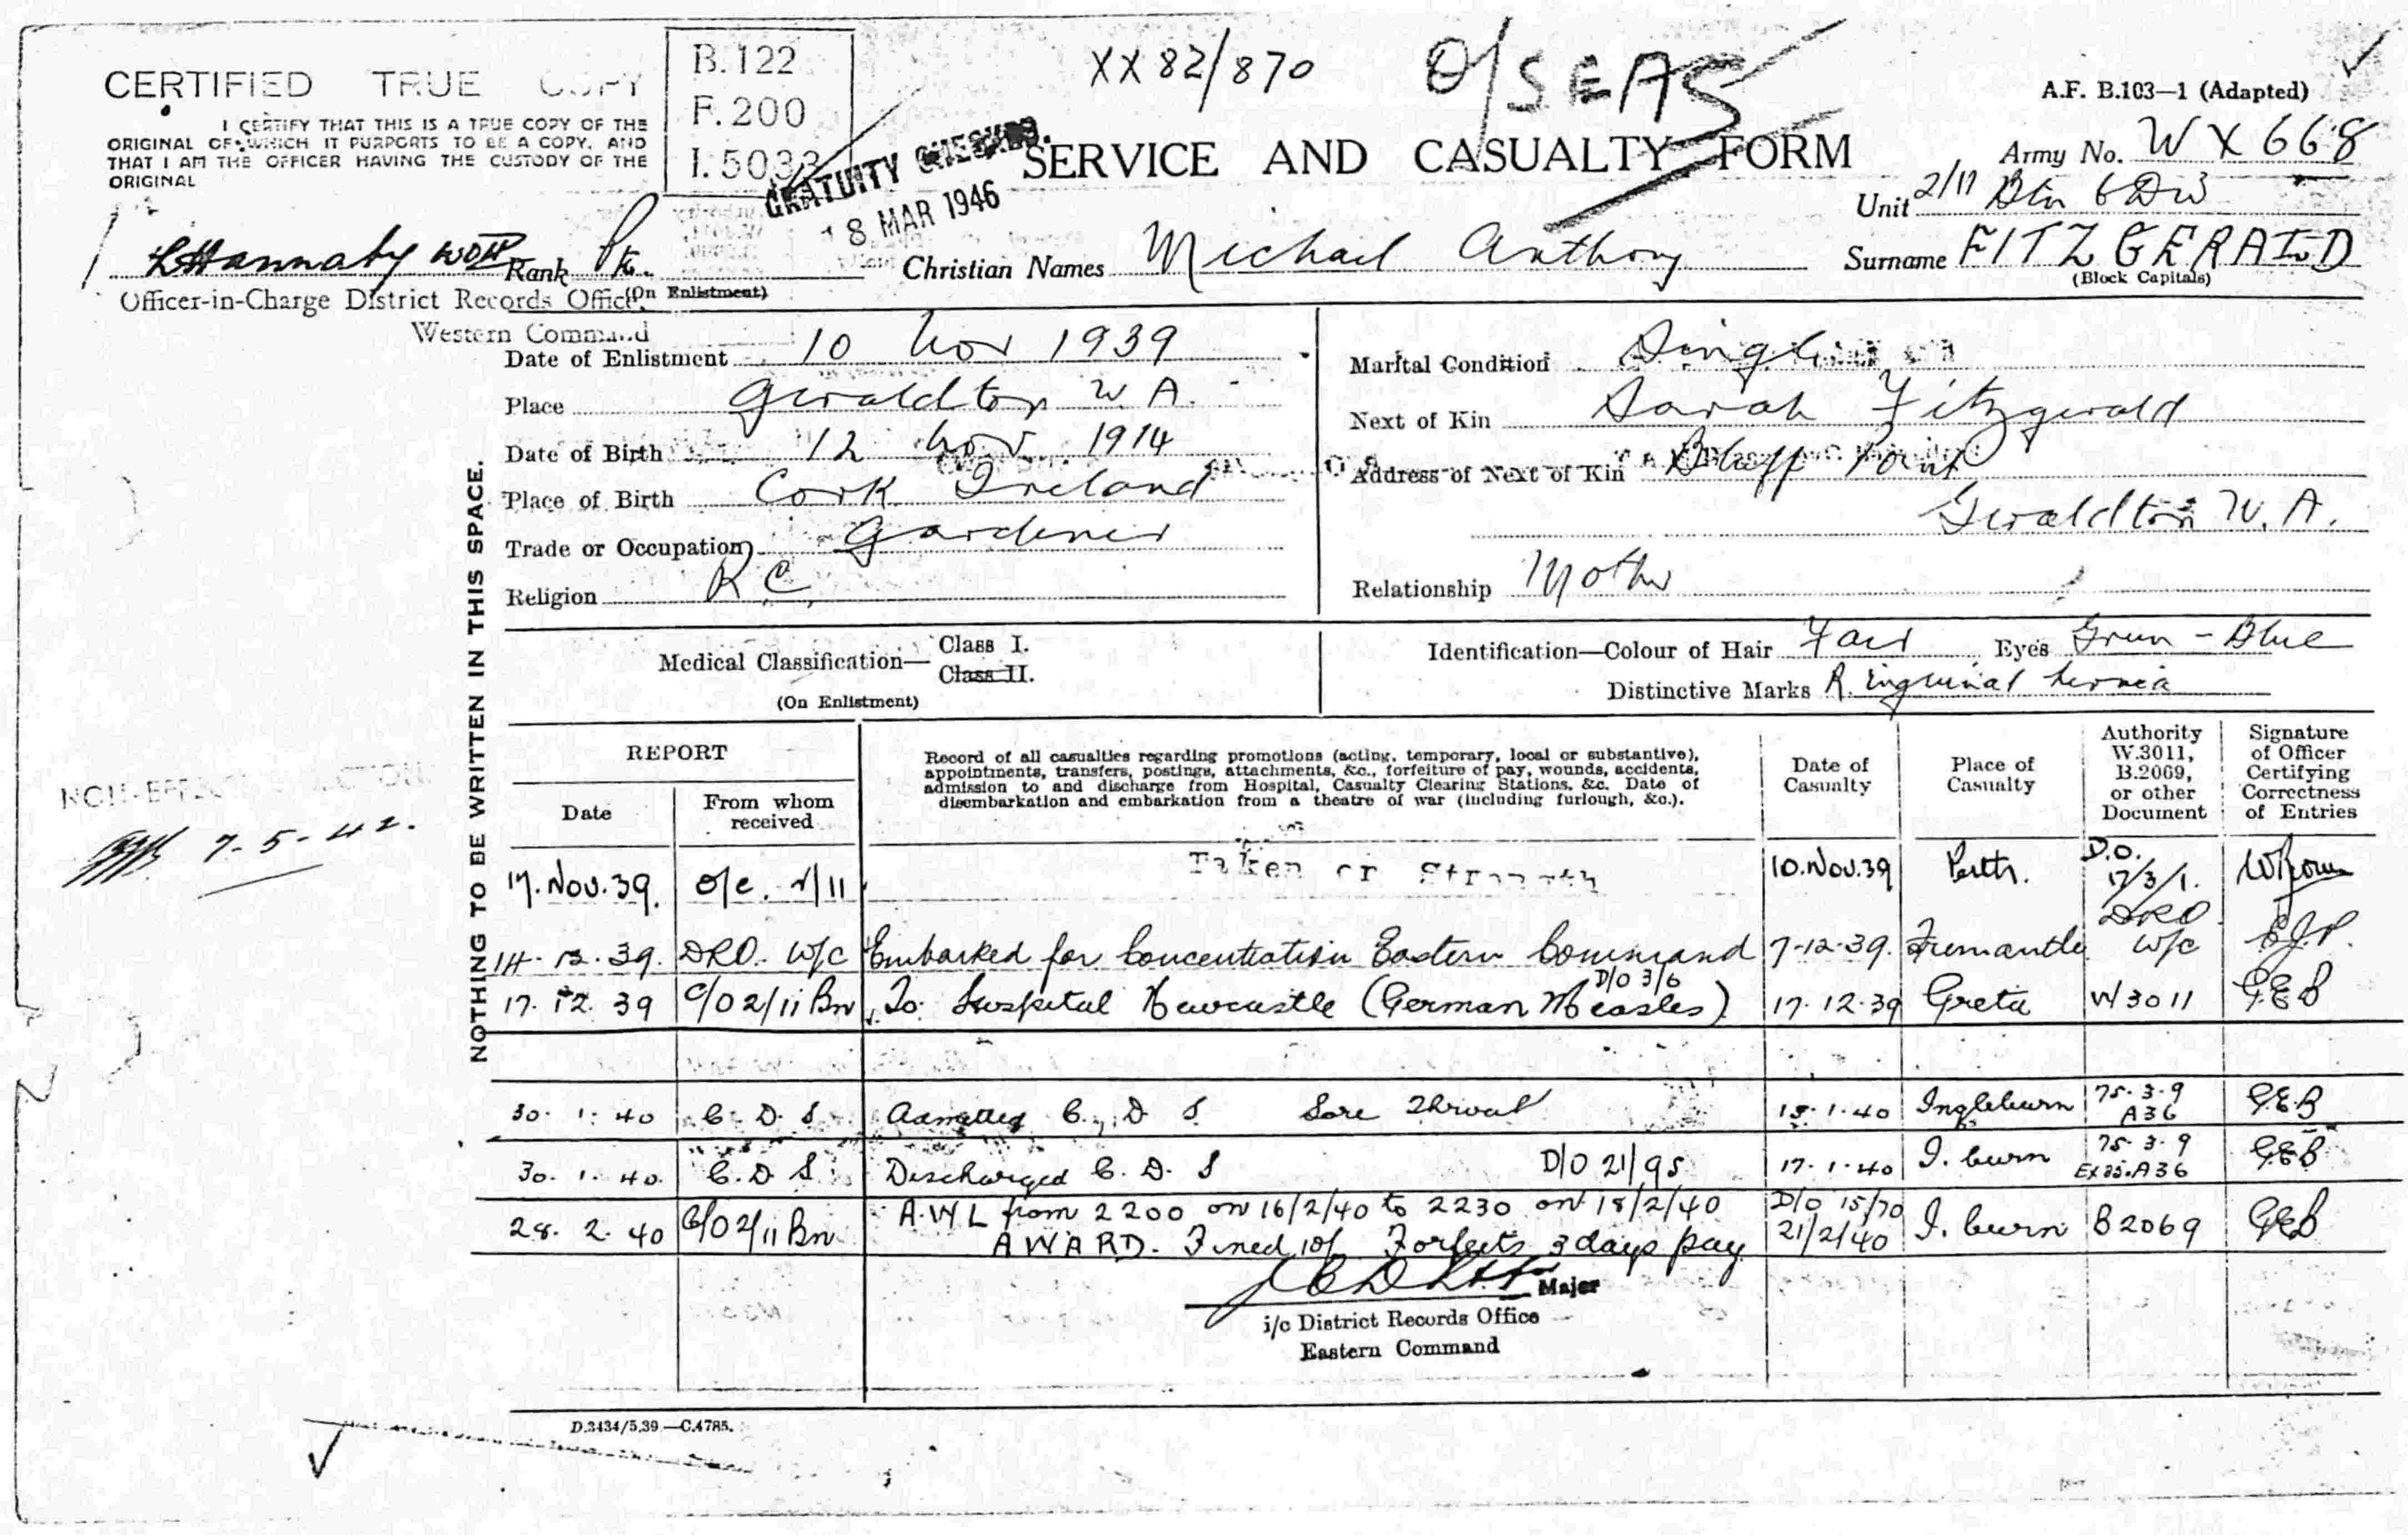 B.122
F.200
I.5033
XX 82/870
O/SEAS
A.F. B.103—1 (Adapted)
CERTIFIED TRUE COPY
I CERTIFY THAT THIS IS A TRUE COPY OF THE
ORIGINAL OF WHICH IT PURPORTS TO BE A COPY, AND
THAT I AM THE OFFICER HAVING THE CUSTODY OF THE
ORIGINAL
GRATUITY CHECKED.
18 MAR 1946
SERVICE AND CASUALTY FORM
Army No. WX668
Unit 2/11 Btn 6 Div
Rank Pte.
(On Enlistment)
Christian Names Michael Anthony
Surname FITZGERALD
(Block Capitals)
Officer-in-Charge District Records Office
Western Command
Date of Enlistment 10 Nov 1939
Place Geraldton W.A.
Date of Birth 12 Nov 1914
Place of Birth Cork Ireland
Trade or Occupation Gardener
Religion R.C.
Marital Condition Single
Next of Kin Sarah Fitzgerald
Address of Next of Kin Bluff Point
Geraldton W.A.
Relationship Mother
Medical Classification— Class I.
Class II.
(On Enlistment)
Identification—Colour of Hair Fair Eyes Green - Blue
Distinctive Marks R. inguinal hernia
NOTHING TO BE WRITTEN IN THIS SPACE.
7-5-42.
REPORT
Date
From whom received
Record of all casualties regarding promotions (acting, temporary, local or substantive),
appointments, transfers, postings, attachments, &c., forfeiture of pay, wounds, accidents,
admission to and discharge from Hospital, Casualty Clearing Stations, &c. Date of
disembarkation and embarkation from a theatre of war (including furlough, &c.).
Date of Casualty
Place of Casualty
Authority W.3011, B.2069, or other Document
Signature of Officer Certifying Correctness of Entries
17.Nov.39. O/c. 2/11 Taken on Strength 10.Nov.39 Perth. D.O. 17/3/1.
14.12.39. DRO. W/C Embarked for Concentration Eastern Command 7-12-39. Fremantle DRO W/C E.J.P.
17.12.39 C/O 2/11 Bn To Hospital Newcastle (German Measles) D/O 3/6 17.12.39 Greta W3011 G.E.B
30.1.40 C.D.S Admitted C.D.S Sore Throat 15.1.40 Ingleburn 75.3.9 A36 G.E.B
30.1.40. C.D.S. Discharged C.D.S D/O 21/95 17.1.40 I.burn 75.3.9 A36 G.E.B
28.2.40 C/O 2/11 Bn A.W.L from 2200 on 16/2/40 to 2230 on 18/2/40 D/o 15/70
AWARD. Fined 10/- Forfeits 3 days pay 21/2/40 I.burn B2069 G.E.B
Major
i/c District Records Office
Eastern Command
D.3434/5.39.—C.4785.